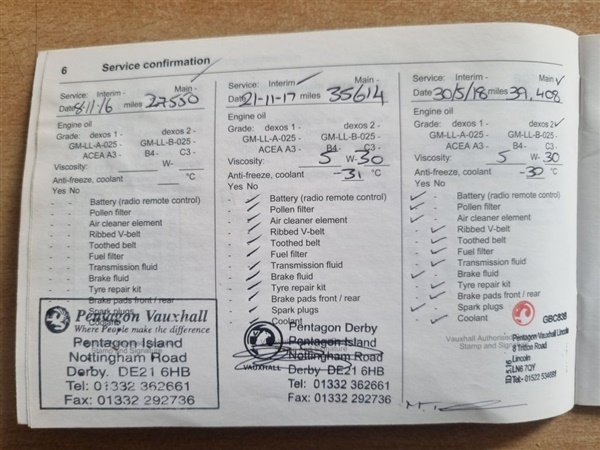 6 Service confirmation
Service: Interim - Main -
Date 8-11-16 miles 27550
Engine oil
Grade: dexos 1 - dexos 2 -
GM-LL-A-025 - GM-LL-B-025 -
ACEA A3 - B4 - C3 -
Viscosity: W-
Anti-freeze, coolant °C
Yes No
- - Battery (radio remote control)
- - Pollen filter
- - Air cleaner element
- - Ribbed V-belt
- - Toothed belt
- - Fuel filter
- - Transmission fluid
- - Brake fluid
- - Tyre repair kit
- - Brake pads front / rear
- - Spark plugs
Coolant
Pentagon Vauxhall
Where People make the difference
Pentagon Island
Nottingham Road
Derby. DE21 6HB
Tel: 01332 362661
Fax: 01332 292736
Service: Interim Main -
Date 21-11-17 miles 35614
Engine oil
Grade: dexos 1 - dexos 2 -
GM-LL-A-025 - GM-LL-B-025 -
ACEA A3 - B4 - C3 -
Viscosity: 5 W-30
Anti-freeze, coolant -31 °C
Yes No
- Battery (radio remote control)
- Pollen filter
- Air cleaner element
- Ribbed V-belt
- Toothed belt
- Fuel filter
- Transmission fluid
- Brake fluid
- Tyre repair kit
- Brake pads front / rear
- Spark plugs
- Coolant
VAUXHALL
Pentagon Derby
Pentagon Island
Nottingham Road
Derby DE21 6HB
Tel: 01332 362661
Fax: 01332 292736
Service: Interim - Main
Date 30/5/18 miles 39,408
Engine oil
Grade: dexos 1 - dexos 2
GM-LL-A-025 - GM-LL-B-025 -
ACEA A3 - B4 - C3 -
Viscosity: 5 W-30
Anti-freeze, coolant -30 °C
Yes No
- Battery (radio remote control)
- Pollen filter
- Air cleaner element
- Ribbed V-belt
- Toothed belt
- Fuel filter
- Transmission fluid
- Brake fluid
- Tyre repair kit
- Brake pads front / rear
- Spark plugs
- Coolant
GBC838
Vauxhall Authorised
Stamp and Signature
Pentagon Vauxhall Lincoln
8 Tritton Road
Lincoln
LN6 7QY
Tel:- 01522